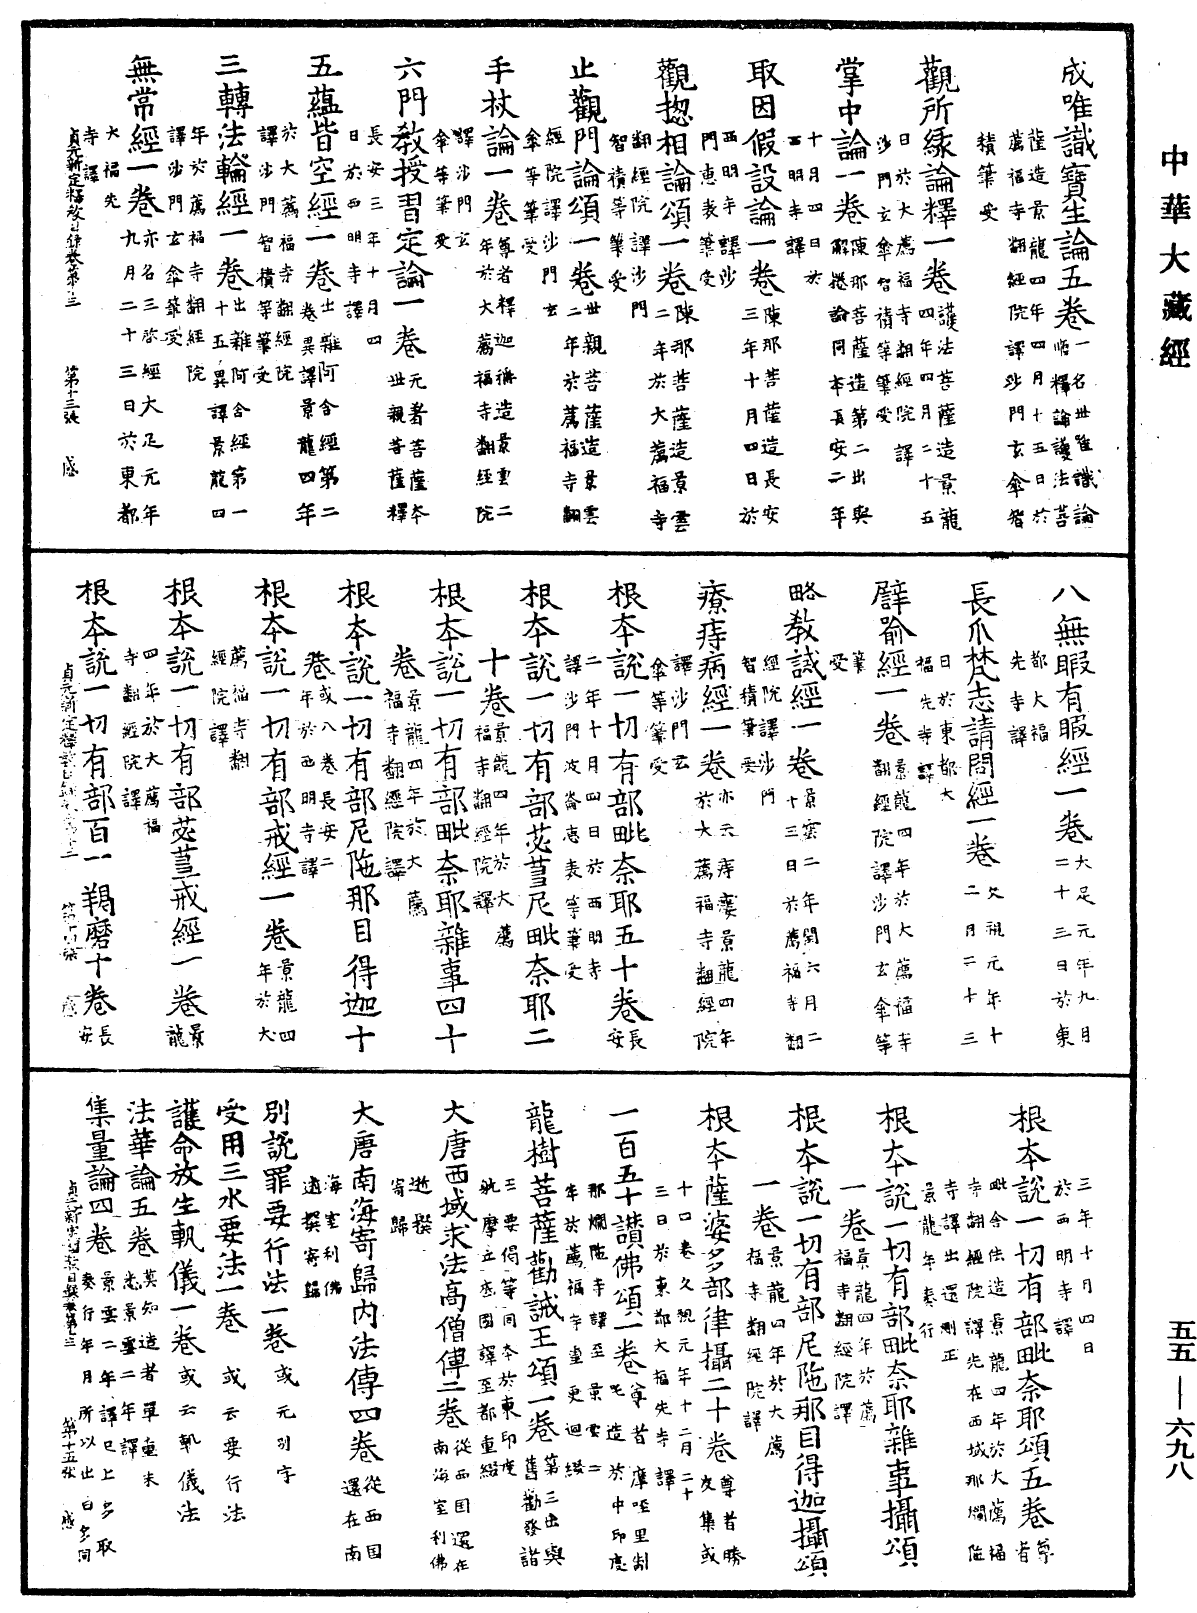 中華大藏經
成唯識寶生論五卷一名世唯識論
順釋論護法菩
薩造景龍四年四月十五日於
薦福寺翻經院譯沙門玄傘智
積筆受
觀所緣論釋一卷護法菩薩造景龍
四年四月二十五
日於大薦福寺翻經院譯
沙門玄傘智積等筆受
掌中論一卷陳那菩薩造第二出與
解捲論同本長安二年
十月四日於
西明寺譯
取因假設論一卷陳那菩薩造長安
三年十月四日於
西明寺譯沙
門惠表筆受
觀揔相論頌一卷陳那菩薩造景雲
二年於大薦福寺
翻經院譯沙門
智積等筆受
止觀門論頌一卷世親菩薩造景雲
二年於薦福寺翻
經院譯沙門玄
傘等筆受
手杖論一卷尊者釋迦稱造景雲二
年於大薦福寺翻經院
譯沙門玄
傘等筆受
六門教授習定論一卷元著菩薩本
世親菩薩釋
長安三年十月四
日於西明寺譯
五蘊皆空經一卷出雜阿含經第二
卷異譯景龍四年
於大薦福寺翻經院
譯沙門智積等筆受
三轉法輪經一卷出雜阿含經第一
十五異譯景龍四
年於薦福寺翻經院
譯沙門玄傘筆受
無常經一卷亦名三啓經大足元年
九月二十三日於東都
大福先
寺譯
第十三張 感
八無暇有暇經一卷大足元年九月
二十三日於東
都大福
先寺譯
長爪梵志請問經一卷久視元年十
二月二十三
日於東都大
福先寺譯
譬喻經一卷景龍四年於大薦福寺
翻經院譯沙門玄傘等
筆
受
略教誡經一卷景雲二年閏六月二
十三日於薦福寺翻
經院譯沙門
智積筆受
療痔病經一卷亦云痔瘻景龍四年
於大薦福寺翻經院
譯沙門玄
傘等筆受
根本說一切有部毗奈耶五十卷長
安
二年十月四日於西明寺
譯沙門波崙惠表等筆受
根本說一切有部苾芻尼毗奈耶二
十卷景龍四年於大薦
福寺翻經院譯
根本說一切有部毗奈耶雜事四十
卷景龍四年於大薦
福寺翻經院譯
根本說一切有部尼陁那目得迦十
卷或八卷長安二
年於西明寺譯
根本說一切有部戒經一卷景龍四
年於大
薦福寺翻
經院譯
根本說一切有部苾芻戒經一卷景
龍
四年於大薦福
寺翻經院譯
根本說一切有部百一羯磨十卷長
安
三年十月四日
於西明寺譯
根本說一切有部毗奈耶頌五卷尊
者
毗舍佉造景龍四年於大薦福
寺翻經院譯先在西域那爛陁
寺譯出還刪正
景龍年奏行
根本說一切有部毗奈耶雜事攝頌
一卷景龍四年於薦
福寺翻經院譯
根本說一切有部尼陁那目得迦攝頌
一卷景龍四年於大薦
福寺翻經院譯
根本薩婆多部律攝二十卷尊者勝
友集或
十四卷久視元年十二月二十
三日於東都大福先寺譯
一百五十讚佛頌一卷尊者摩咥里制
吒造於中印度
那爛陁寺譯至景雲二
年於薦福寺重更迴綴
龍樹菩薩勸誡王頌一卷第三出與
舊勸發諸
王要偈等同本於東印度
躭摩立底國譯至都重綴
大唐西域求法高僧傳二卷從西國還在
南海室利佛
逝撰
寄歸
大唐南海寄歸內法傳四卷從西國
還在南
海室利佛
逝撰寄歸
別說罪要行法一卷或元別字
受用三水要法一卷或云要行法
護命放生軌儀一卷或云軌儀法
法華論五卷莫知造者單重未
悉景雲二年譯
集量論四卷景雲二年譯已上多取
奏行年月所以出日多同
第十五張 感
五五—六九八